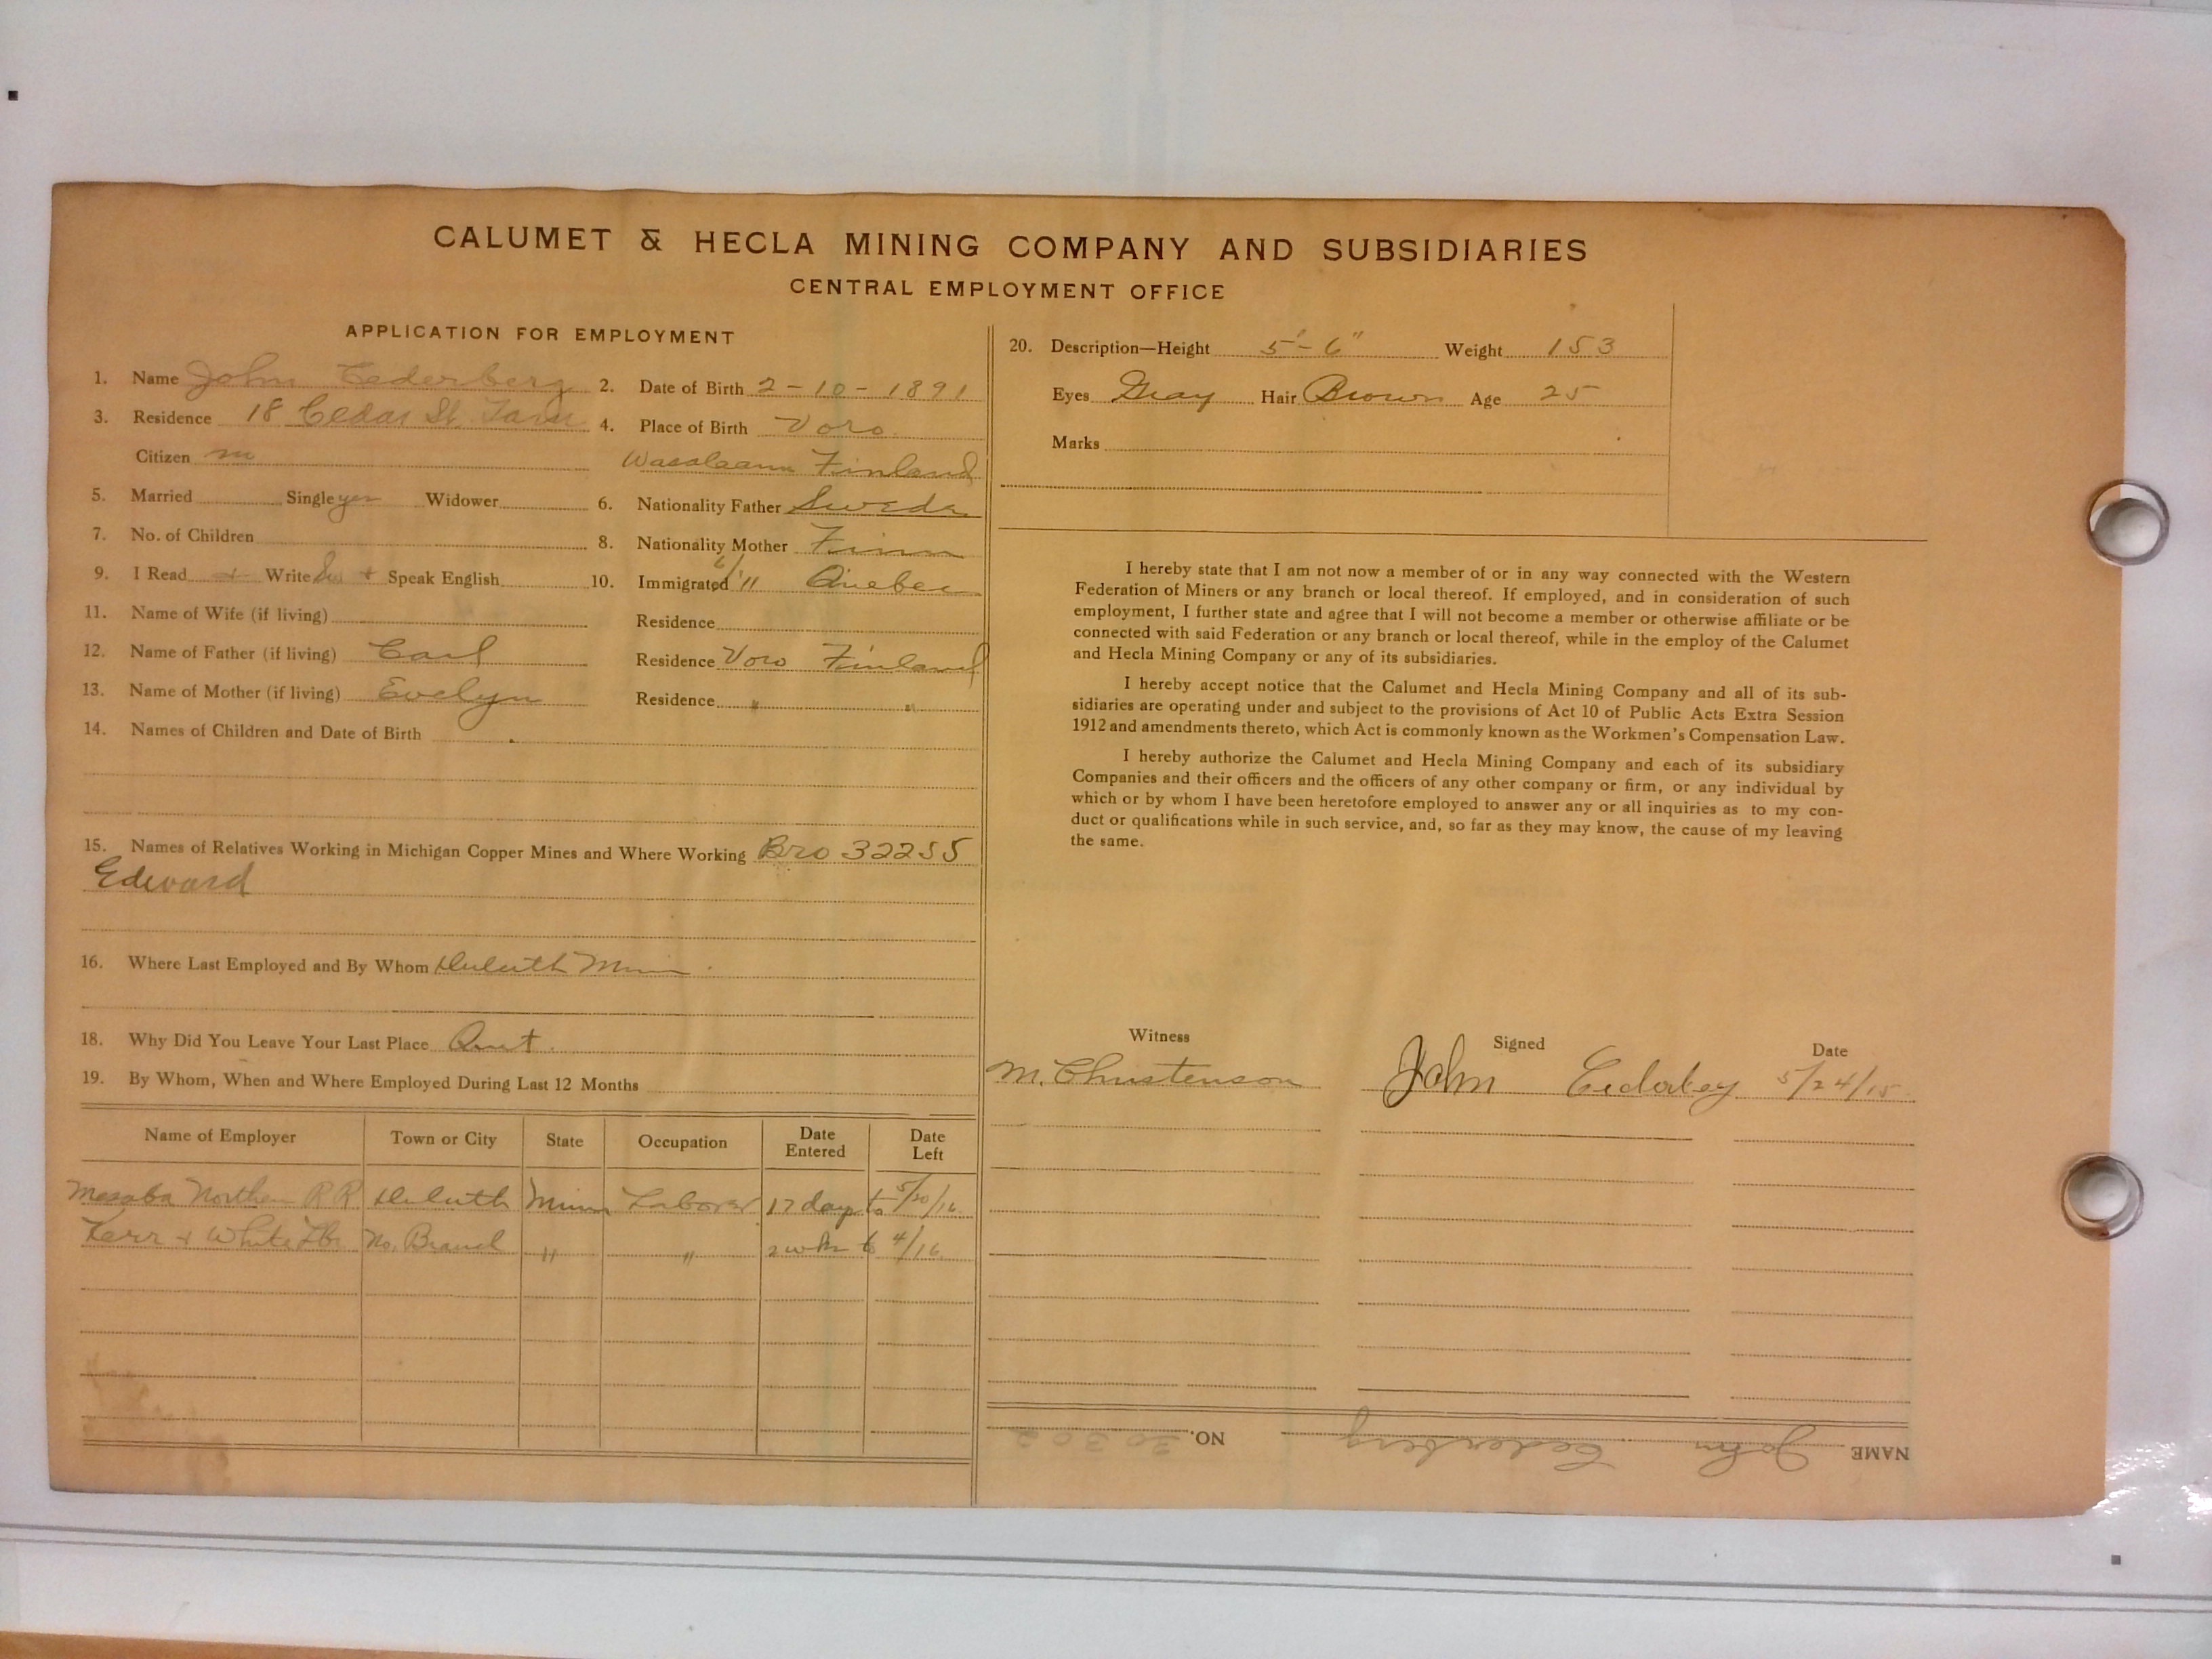 CALUMET & HECLA MINING COMPANY AND SUBSIDIARIES
CENTRAL EMPLOYMENT OFFICE
APPLICATION FOR EMPLOYMENT
1. Name John Cederberg 2. Date of Birth 2-10-1891
3. Residence 18 Cedar St. 4. Place of Birth Voro
Citizen no Wasalaani Finland
5. Married Single yes Widower 6. Nationality Father Swede
7. No. of Children 8. Nationality Mother Finn
9. I Read + Write + Speak English 10. Immigrated 6/'11 Quebec
11. Name of Wife (if living) Residence
12. Name of Father (if living) Carl Residence Voro Finland
13. Name of Mother (if living) Evelyn Residence " "
14. Names of Children and Date of Birth
15. Names of Relatives Working in Michigan Copper Mines and Where Working Bro 32255
Edward
16. Where Last Employed and By Whom Duluth Minn.
18. Why Did You Leave Your Last Place Quit
19. By Whom, When and Where Employed During Last 12 Months
Name of Employer Town or City State Occupation Date Entered Date Left
Mesaba Northern R R Duluth Minn Laborer 17 days to 5/20/16
Kerr + White Lbr No. Branch " " 2 wks to 4/16
20. Description—Height 5'-6" Weight 153
Eyes Gray Hair Brown Age 25
Marks
I hereby state that I am not now a member of or in any way connected with the Western
Federation of Miners or any branch or local thereof. If employed, and in consideration of such
employment, I further state and agree that I will not become a member or otherwise affiliate or be
connected with said Federation or any branch or local thereof, while in the employ of the Calumet
and Hecla Mining Company or any of its subsidiaries.
I hereby accept notice that the Calumet and Hecla Mining Company and all of its sub-
sidiaries are operating under and subject to the provisions of Act 10 of Public Acts Extra Session
1912 and amendments thereto, which Act is commonly known as the Workmen's Compensation Law.
I hereby authorize the Calumet and Hecla Mining Company and each of its subsidiary
Companies and their officers and the officers of any other company or firm, or any individual by
which or by whom I have been heretofore employed to answer any or all inquiries as to my con-
duct or qualifications while in such service, and, so far as they may know, the cause of my leaving
the same.
Witness Signed Date
M. Christenson John Cederbeg 5/24/15
NAME John Cederberg NO. 30302